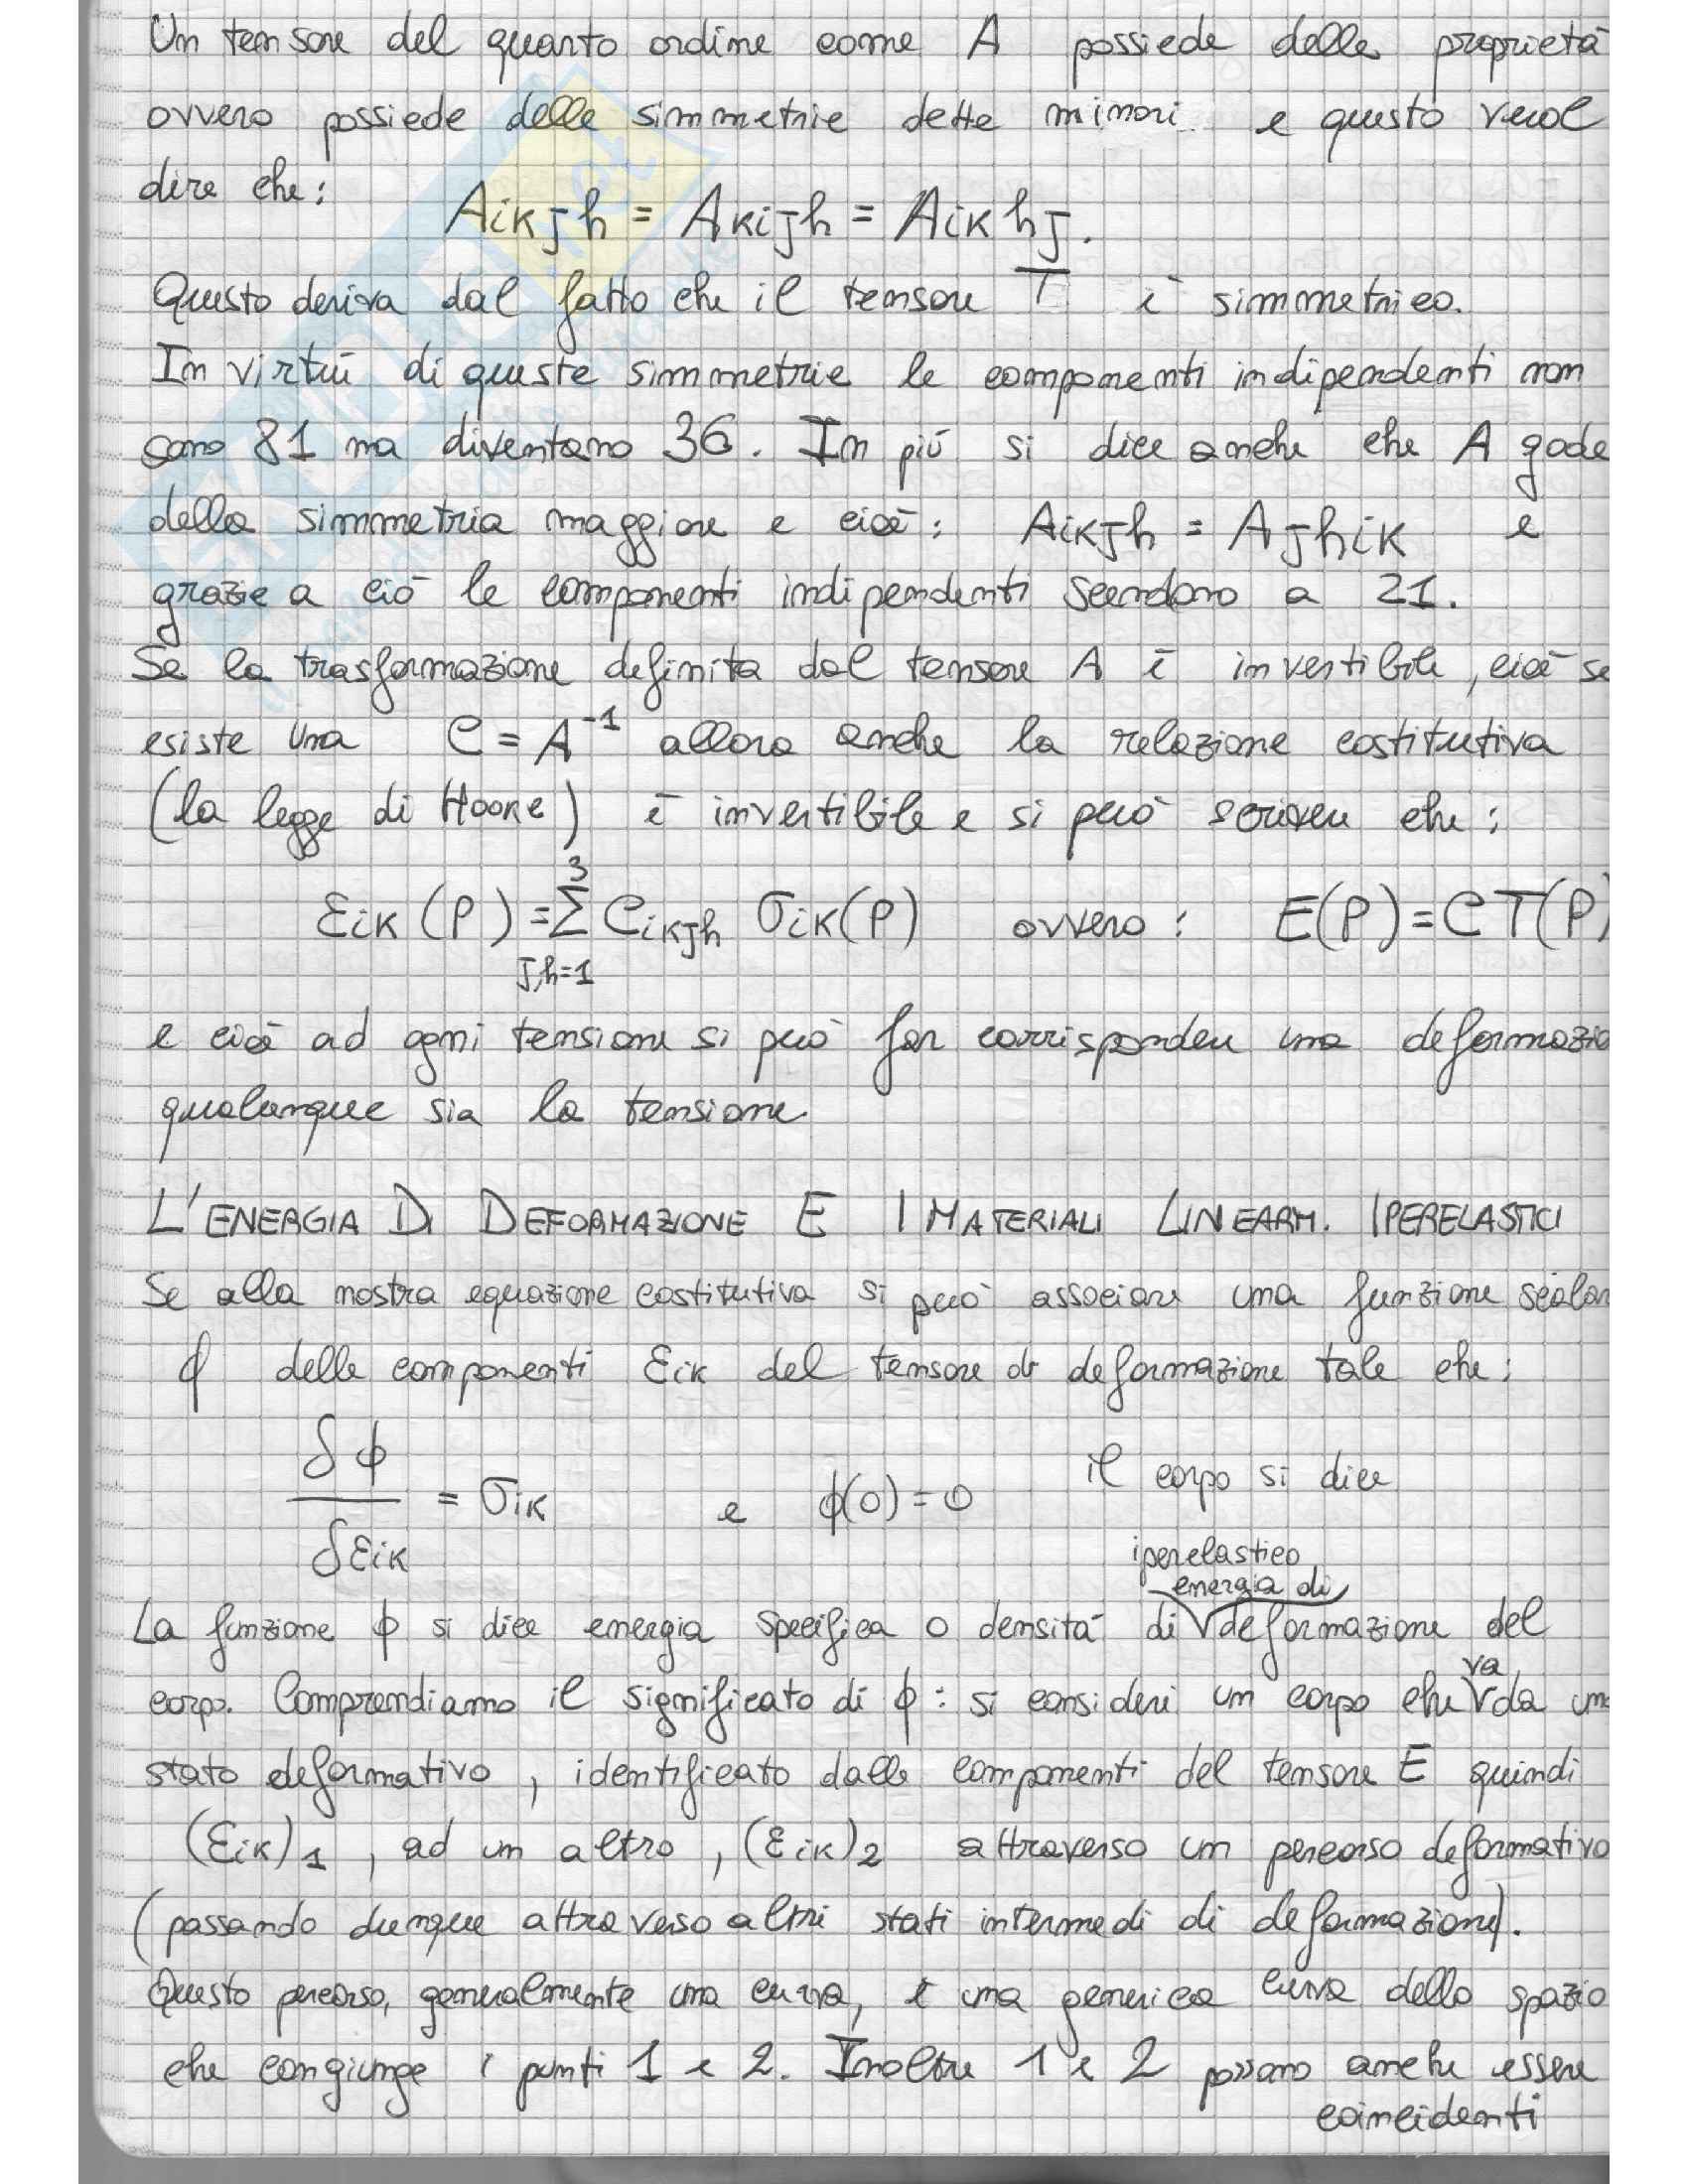 Un tensore del quarto ordine come A possiede delle proprietà
ovvero possiede delle simmetrie dette minori e questo vuol
dire che:
Aikjh = Akijh = Aikhj.
Questo deriva dal fatto che il tensore T è simmetrico.
In virtù di queste simmetrie le componenti indipendenti non
sono 81 ma diventano 36. In più si dice anche che A gode
della simmetria maggiore e cioè: Aikjh = Ajhik e
grazie a ciò le componenti indipendenti scendono a 21.
Se la trasformazione definita dal tensore A è invertibile, cioè se
esiste una C = A⁻¹ allora anche la relazione costitutiva
(la legge di Hooke) è invertibile e si può scrivere che:
εik (P) = Σ³j,h=1 Cikjh σik(P) ovvero: E(P) = C T(P)
e cioè ad ogni tensione si può far corrispondere una deformazio
qualunque sia la tensione.
L'ENERGIA DI DEFORMAZIONE E I MATERIALI LINEARM. IPERELASTICI
Se alla nostra equazione costitutiva si può associare una funzione scalar
ϕ delle componenti εik del tensore di deformazione tale che:
δϕ/δεik = σik e ϕ(0) = 0 il corpo si dice
iperelastico
La funzione ϕ si dice energia specifica o densità di energia di deformazione del
corpo. Comprendiamo il significato di ϕ: si consideri un corpo che va da uno
stato deformativo, identificato dalle componenti del tensore E quindi
(εik)1, ad un altro, (εik)2 attraverso un percorso deformativo
(passando dunque attraverso altri stati intermedi di deformazione).
Questo percorso, generalmente una curva, è una generica curva dello spazio
che congiunge i punti 1 e 2. Inoltre 1 e 2 possono anche essere
coincidenti